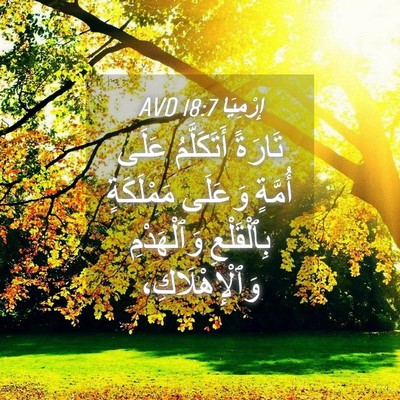 إِرْمِيَا 18:7 AVD
تَارَةً أَتَكَلَّمُ عَلَى
أُمَّةٍ وَعَلَى مَمْلَكَةٍ
بِٱلْقَلْعِ وَٱلْهَدْمِ
وَٱلْإِهْلَاكِ،